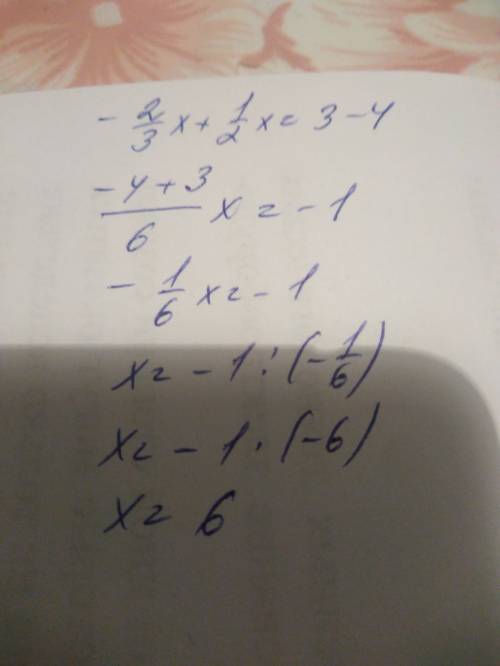 - 2/3 x + 1/2 x = 3 - 4
(-4 + 3)/6 x = - 1
- 1/6 x = - 1
x = - 1 : (- 1/6)
x = - 1 · (-6)
x = 6